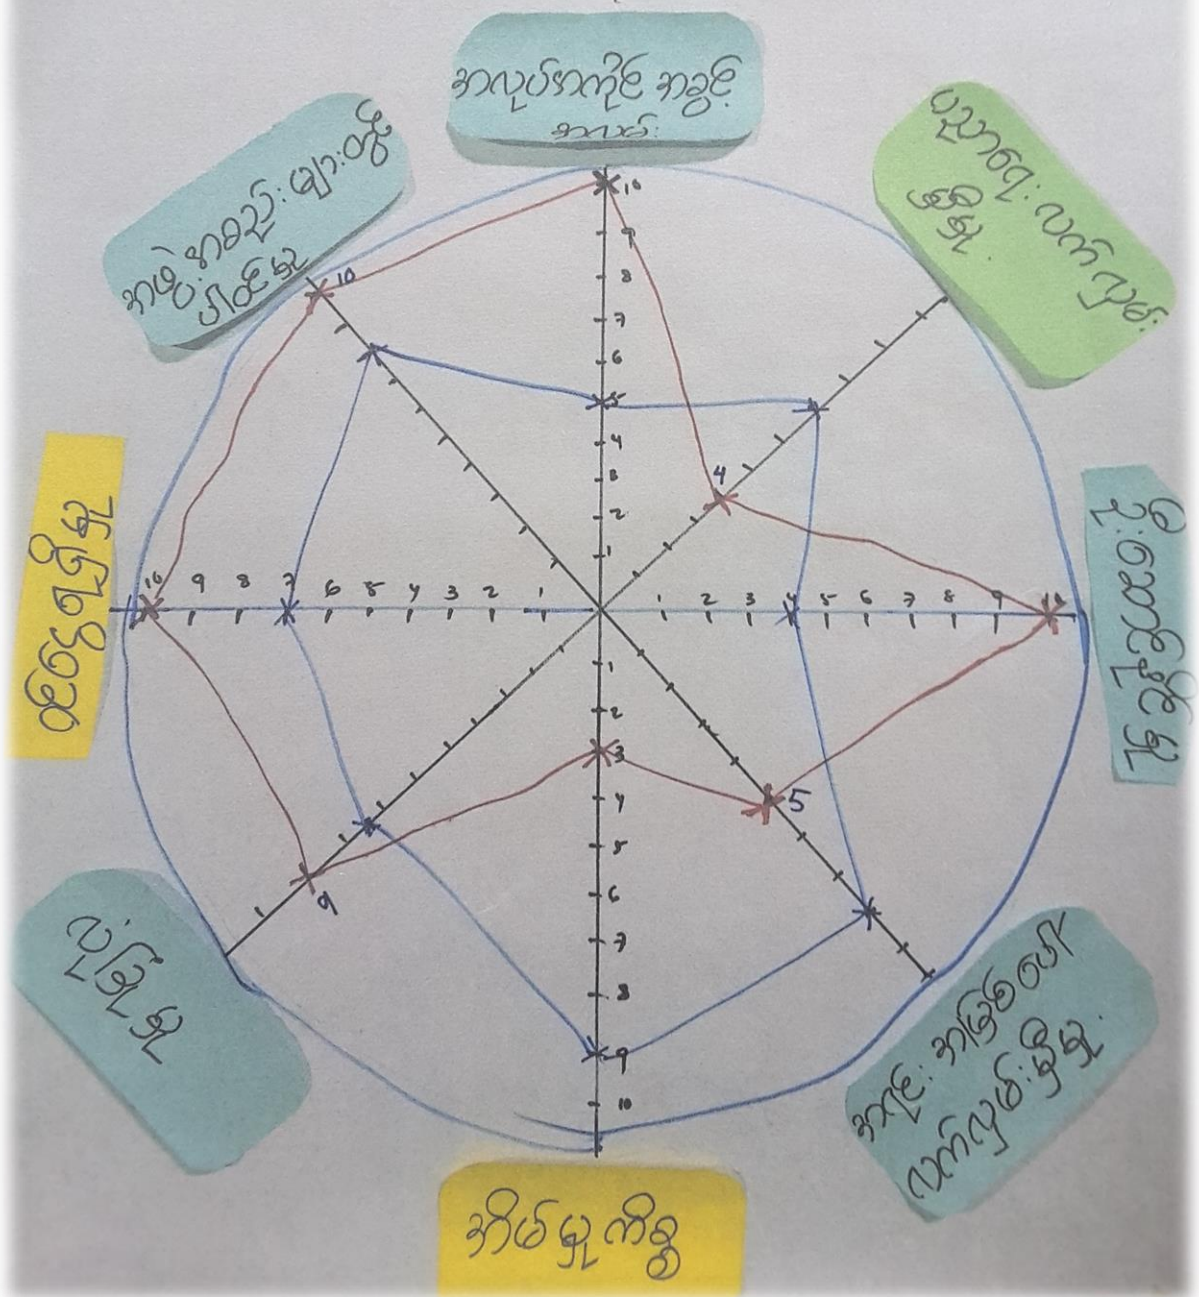 အလုပ်အကိုင် အခွင့်
အလမ်း
ပညာရေး လက်လှမ်း
မှီမှု
ဦးဆောင်နိုင်မှု
အရင်း အမြစ်ပေါ်
လက်လှမ်းမှီမှု
အိမ်မှုကိစ္စ
လုံခြုံမှု
ငွေရရှိမှု
အဖွဲ့အစည်းများတွင်
ပါဝင်မှု
10
9
8
7
6
5
4
3
2
1
4
1 2 3 4 5 6 7 8 9 10
5
1
2
3
4
5
6
7
8
9
10
9
10 9 8 7 6 5 4 3 2 1
10